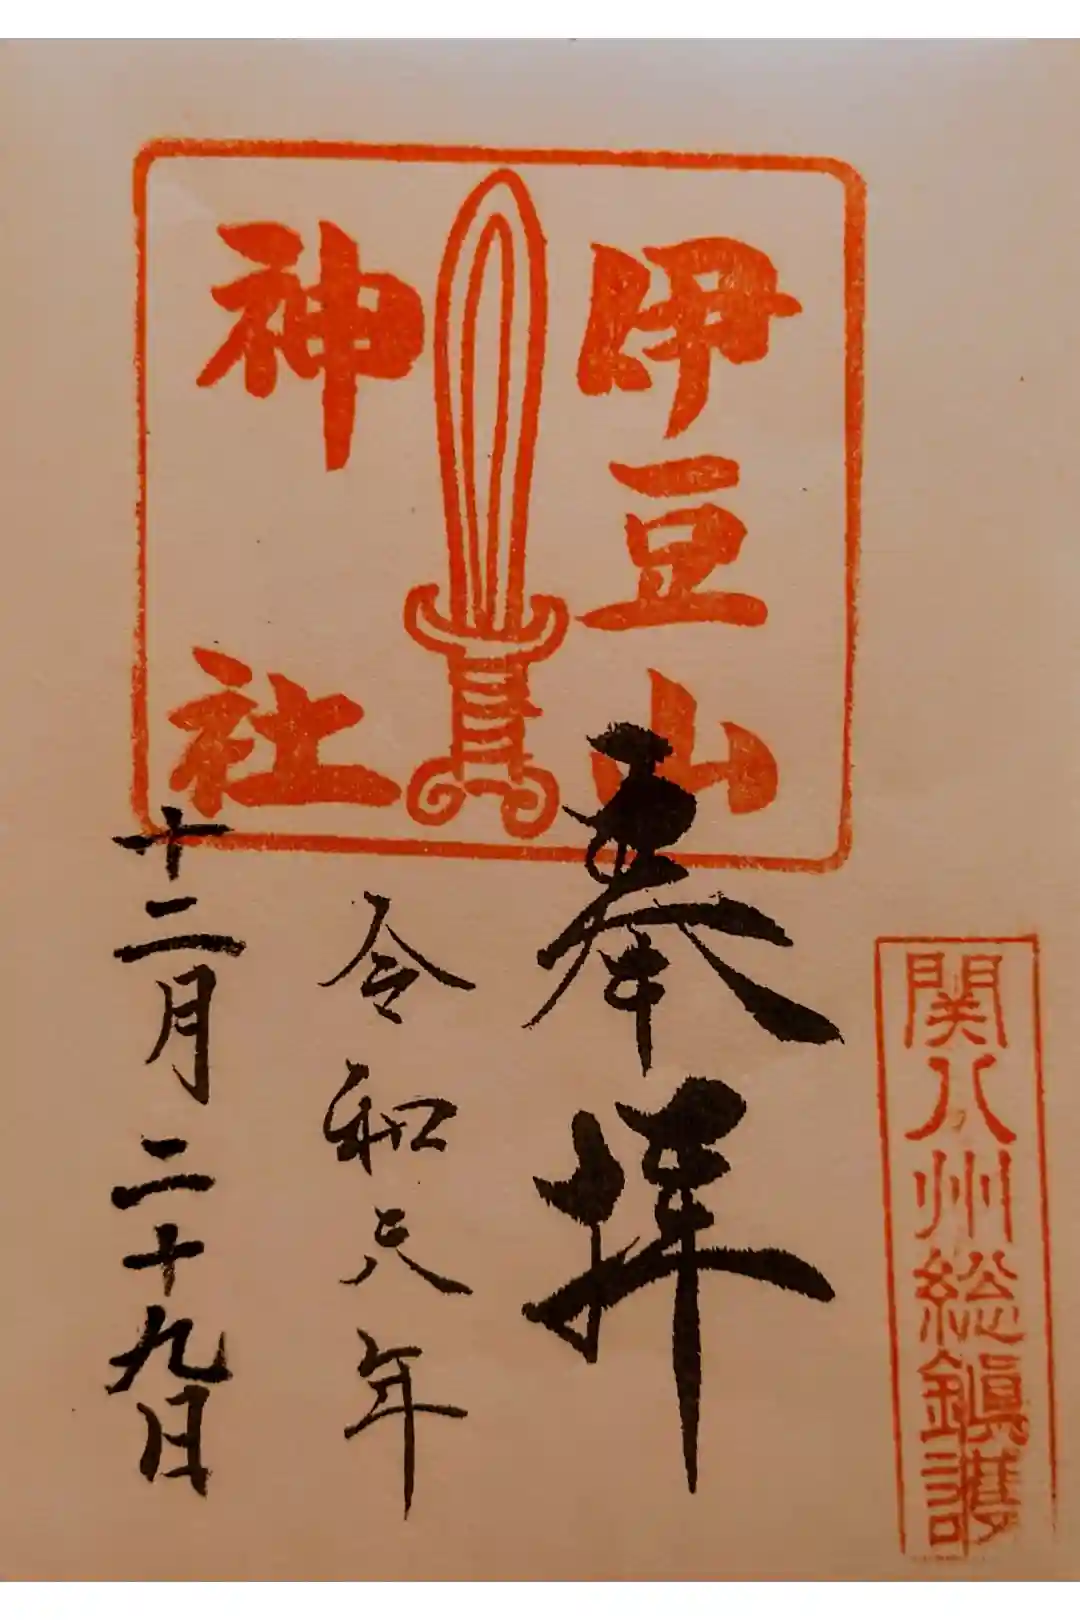 関八州総鎮護
伊豆山
神社
奉拝
令和元年
十二月二十九日